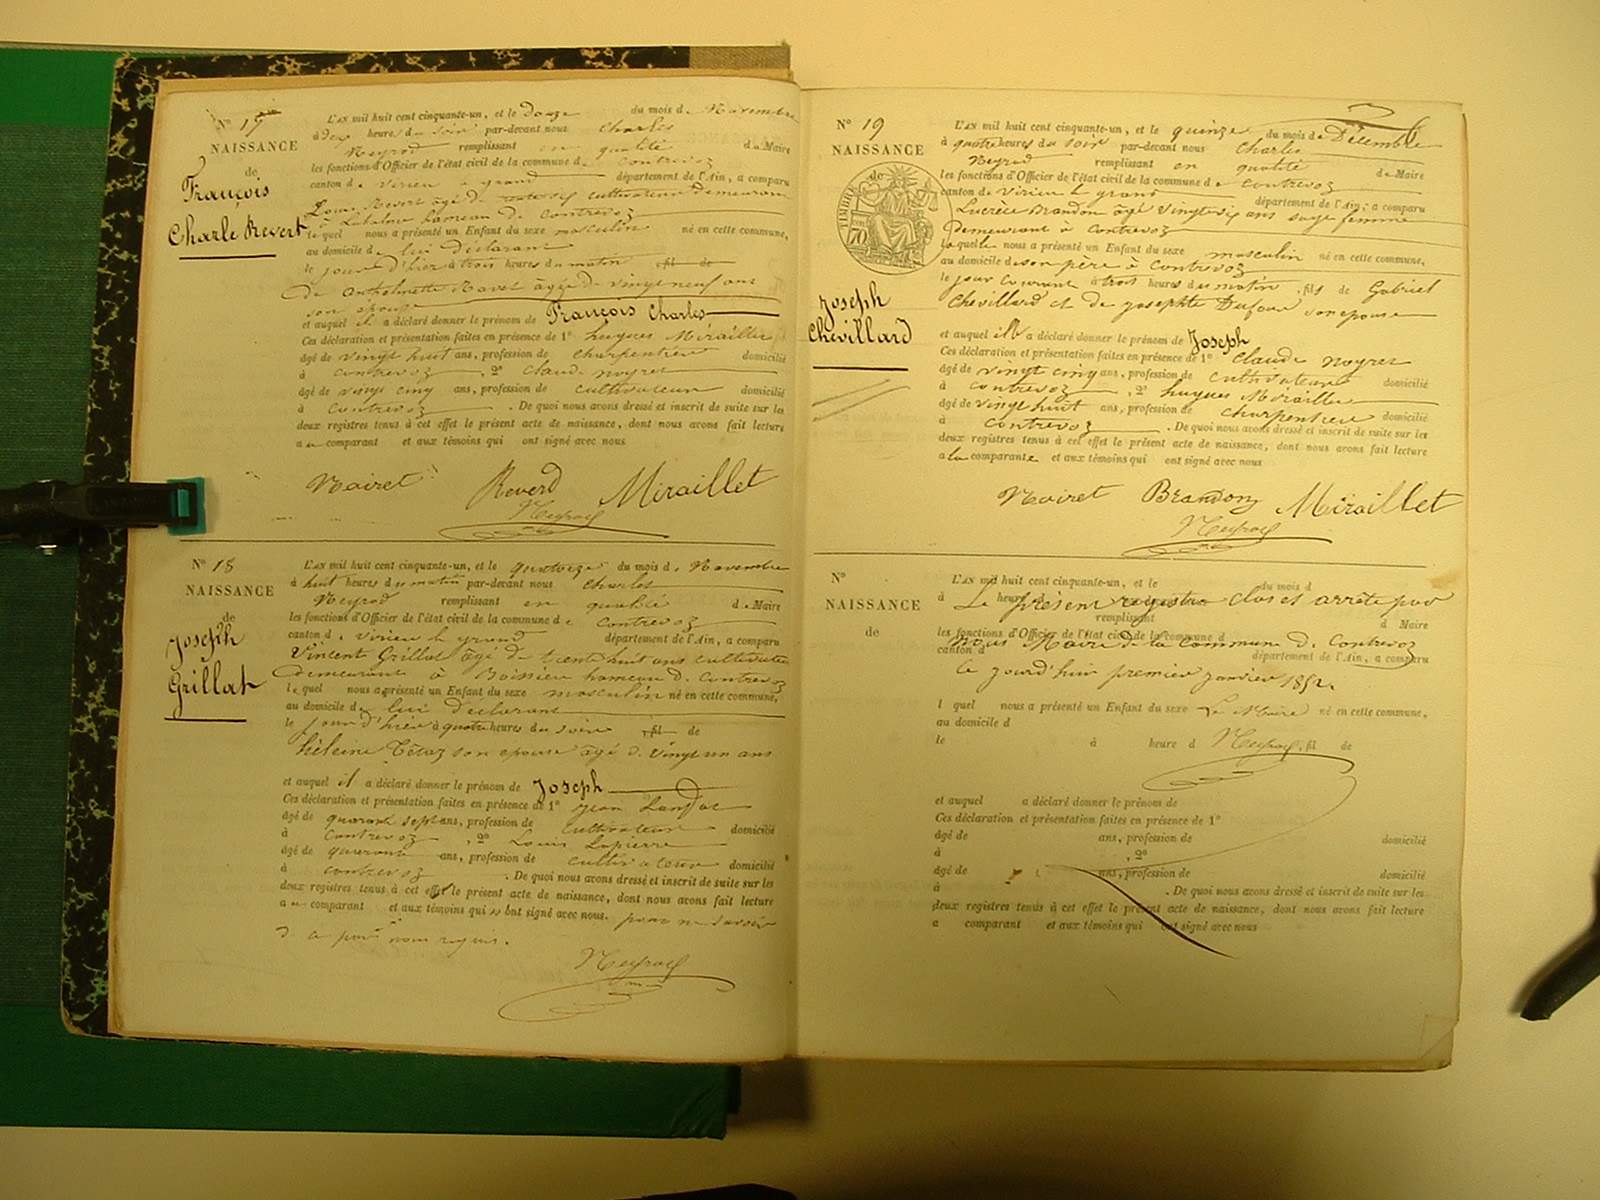 No 17
NAISSANCE
de
François
Charle Revert
L'AN mil huit cent cinquante-un, et le douze du mois de Novembre
à deux heures du soir par-devant nous Charles
Neyrod remplissant en qualité de Maire
les fonctions d'Officier de l'état civil de la commune de Contrevoz
canton de Virieu le grand département de l'Ain, a comparu
Louis Revert âgé de cultivateur demeurant
à hameau de Contrevoz
lequel nous a présenté un Enfant du sexe masculin né en cette commune,
au domicile de lui déclarant
le jour d'hier à trois heures du matin fil de
de Anthelmette Ravet âgée de vingt neuf ans
son épouse
et auquel il a déclaré donner le prénom de François Charles
Ces déclaration et présentation faites en présence de 1° hugues Miraillet
âgé de vingt huit ans, profession de charpentier domicilié
à Contrevoz , 2° Claude noyret
âgé de vingt cinq ans, profession de cultivateur domicilié
à Contrevoz . De quoi nous avons dressé et inscrit de suite sur les
deux registres tenus à cet effet le présent acte de naissance, dont nous avons fait lecture
au comparant et aux témoins qui ont signé avec nous
Noiret Reverd Miraillet
Neyrod
No 18
NAISSANCE
de
Joseph
Grillat
L'AN mil huit cent cinquante-un, et le quatorze du mois de Novembre
à huit heures du matin par-devant nous Charles
Neyrod remplissant en qualité de Maire
les fonctions d'Officier de l'état civil de la commune de Contrevoz
canton de Virieu le grand département de l'Ain, a comparu
Vincent Grillat âgé de trente huit ans cultivateur
demeurant à Boissieu hameau de Contrevoz
lequel nous a présenté un Enfant du sexe masculin né en cette commune,
au domicile de lui déclarant
le jour d'hier à quatre heures du soir fil de
héleine son épouse âgé de vingt un ans
et auquel il a déclaré donner le prénom de Joseph
Ces déclaration et présentation faites en présence de 1° Jean
âgé de quarante sept ans, profession de cultivateur domicilié
à Contrevoz , 2° Louis Lapierre
âgé de quarante ans, profession de cultivateur domicilié
à Contrevoz . De quoi nous avons dressé et inscrit de suite sur les
deux registres tenus à cet effet le présent acte de naissance, dont nous avons fait lecture
au comparant et aux témoins qui n'ont signé avec nous. pour ne savoir
de ce par nous requis.
Neyrod
No 19
NAISSANCE
de
TIMBRE
70
Joseph
Chevillard
L'AN mil huit cent cinquante-un, et le quinze du mois de Décembre
à quatre heures du soir par-devant nous Charles
Neyrod remplissant en qualité de Maire
les fonctions d'Officier de l'état civil de la commune de Contrevoz
canton de Virieu le grand département de l'Ain, a comparu
Lucrèce Brandon âgé vingt six ans sage femme
demeurant à Contrevoz
laquelle nous a présenté un Enfant du sexe masculin né en cette commune,
au domicile de son père à Contrevoz
le jour courant à trois heures du matin, fils de Gabriel
Chevillard et de Josephte Dufour son épouse
et auquel ill a déclaré donner le prénom de Joseph
Ces déclaration et présentation faites en présence de 1° Claude noyret
âgé de vingt cinq ans, profession de cultivateur domicilié
à Contrevoz , 2° hugues Miraillet
âgé de vingt huit ans, profession de charpentier domicilié
à Contrevoz . De quoi nous avons dressé et inscrit de suite sur les
deux registres tenus à cet effet le présent acte de naissance, dont nous avons fait lecture
a la comparante et aux témoins qui ont signé avec nous
Noiret Brandon Miraillet
Neyrod
No
NAISSANCE
de
L'AN mil huit cent cinquante-un, et le du mois d
à heure
Le présent registre clos et arrêté par
remplissant d Maire
les fonctions d'Officier de l'état civil de la commune d
Nous Maire de la commune de Contrevoz
canton d département de l'Ain, a comparu
ce jourd'hui premier janvier 1852.
l quel nous a présenté un Enfant du sexe Le Maire né en cette commune,
au domicile d
le à heure d Neyrod fil de
et auquel a déclaré donner le prénom de
Ces déclaration et présentation faites en présence de 1°
âgé de ans, profession de domicilié
à , 2°
âgé de ans, profession de domicilié
à . De quoi nous avons dressé et inscrit de suite sur les
deux registres tenus à cet effet le présent acte de naissance, dont nous avons fait lecture
a comparant et aux témoins qui ont signé avec nous